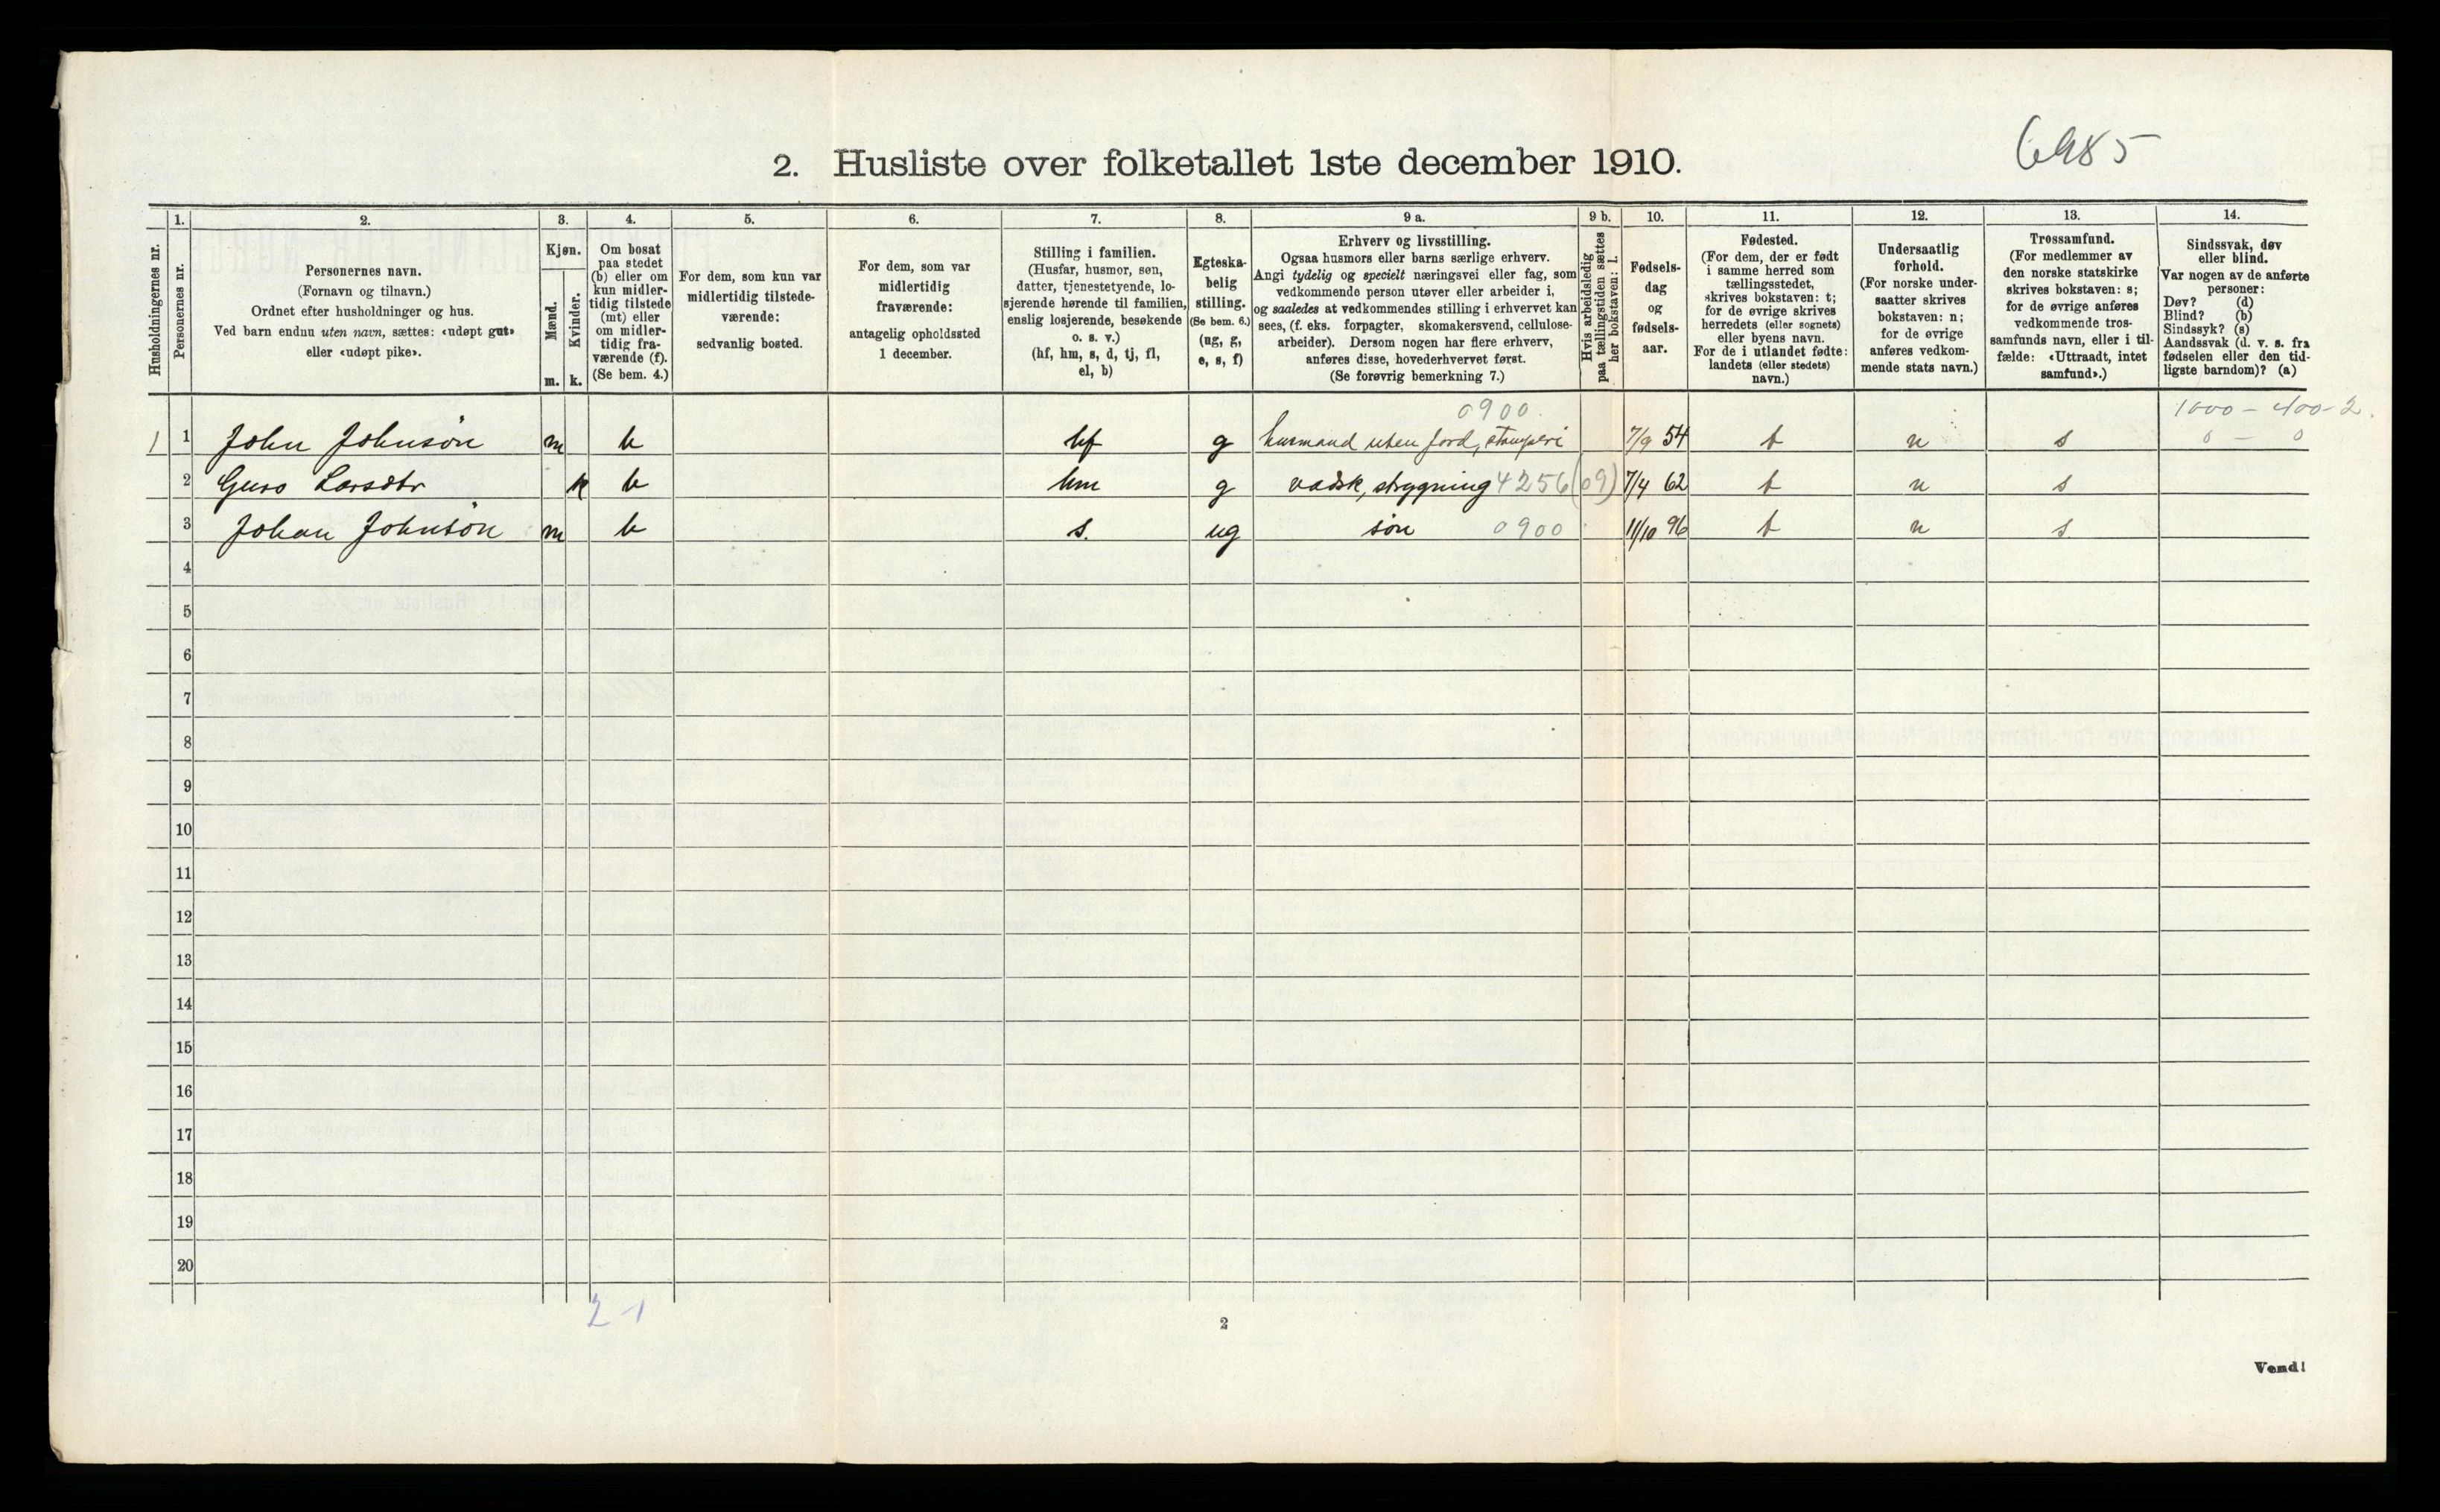 6985
2. Husliste over folketallet 1ste december 1910.
Husholdningernes nr.
1.
Personernes nr.
2.
Personernes navn.
(Fornavn og tilnavn.)
Ordnet efter husholdninger og hus.
Ved barn endnu uten navn, sættes: «udøpt gut»
eller «udøpt pike».
3.
Kjøn.
Mænd.
Kvinder.
m. k.
4.
Om bosat
paa stedet
(b) eller om
kun midler-
tidig tilstede
(mt) eller
om midler-
tidig fra-
værende (f).
(Se bem. 4.)
5.
For dem, som kun var
midlertidig tilstede-
værende:
sedvanlig bosted.
6.
For dem, som var
midlertidig
fraværende:
antagelig opholdssted
1 december.
7.
Stilling i familien.
(Husfar, husmor, søn,
datter, tjenestetyende, lo-
sjerende hørende til familien,
enslig losjerende, besøkende
o. s. v.)
(hf, hm, s, d, tj, fl,
el, b)
8.
Egteska-
belig
stilling.
(Se bem. 6.)
(ug, g,
e, s, f)
9 a.
Erhverv og livsstilling.
Ogsaa husmors eller barns særlige erhverv.
Angi tydelig og specielt næringsvei eller fag, som
vedkommende person utøver eller arbeider i,
og saaledes at vedkommendes stilling i erhvervet kan
sees, (f. eks. forpagter, skomakersvend, cellulose-
arbeider). Dersom nogen har flere erhverv,
anføres disse, hovederhvervet først.
(Se forøvrig bemerkning 7.)
9 b.
Hvis arbeidsledig
paa tællingstiden sættes
her bokstaven: l.
10.
Fødsels-
dag
og
fødsels-
aar.
11.
Fødested.
(For dem, der er født
i samme herred som
tællingsstedet,
skrives bokstaven: t;
for de øvrige skrives
herredets (eller sognets)
eller byens navn.
For de i utlandet fødte:
landets (eller stedets)
navn.)
12.
Undersaatlig
forhold.
(For norske under-
saatter skrives
bokstaven: n;
for de øvrige
anføres vedkom-
mende stats navn.)
13.
Trossamfund.
(For medlemmer av
den norske statskirke
skrives bokstaven: s;
for de øvrige anføres
vedkommende tros-
samfunds navn, eller i til-
fælde: «Uttraadt, intet
samfund».)
14.
Sindssvak, døv
eller blind.
Var nogen av de anførte
personer:
Døv? (d)
Blind? (b)
Sindssyk? (s)
Aandssvak (d. v. s. fra
fødselen eller den tid-
ligste barndom)? (a)
0900. 1000 - 400-2.
1 1 John Johnsön m b hf g husmand uten jord, stamperi 7/9 54 t n s 0 - 0
2 Guro Larsdtr k b hm g vadsk, strygning 4256 (09) 7/4 62 t n s
3 Johan Johnsön m b s. ug sön 0900 11/10 96 t n s
4
5
6
7
8
9
10
11
12
13
14
15
16
17
18
19
20
2 - 1
2
Vend!